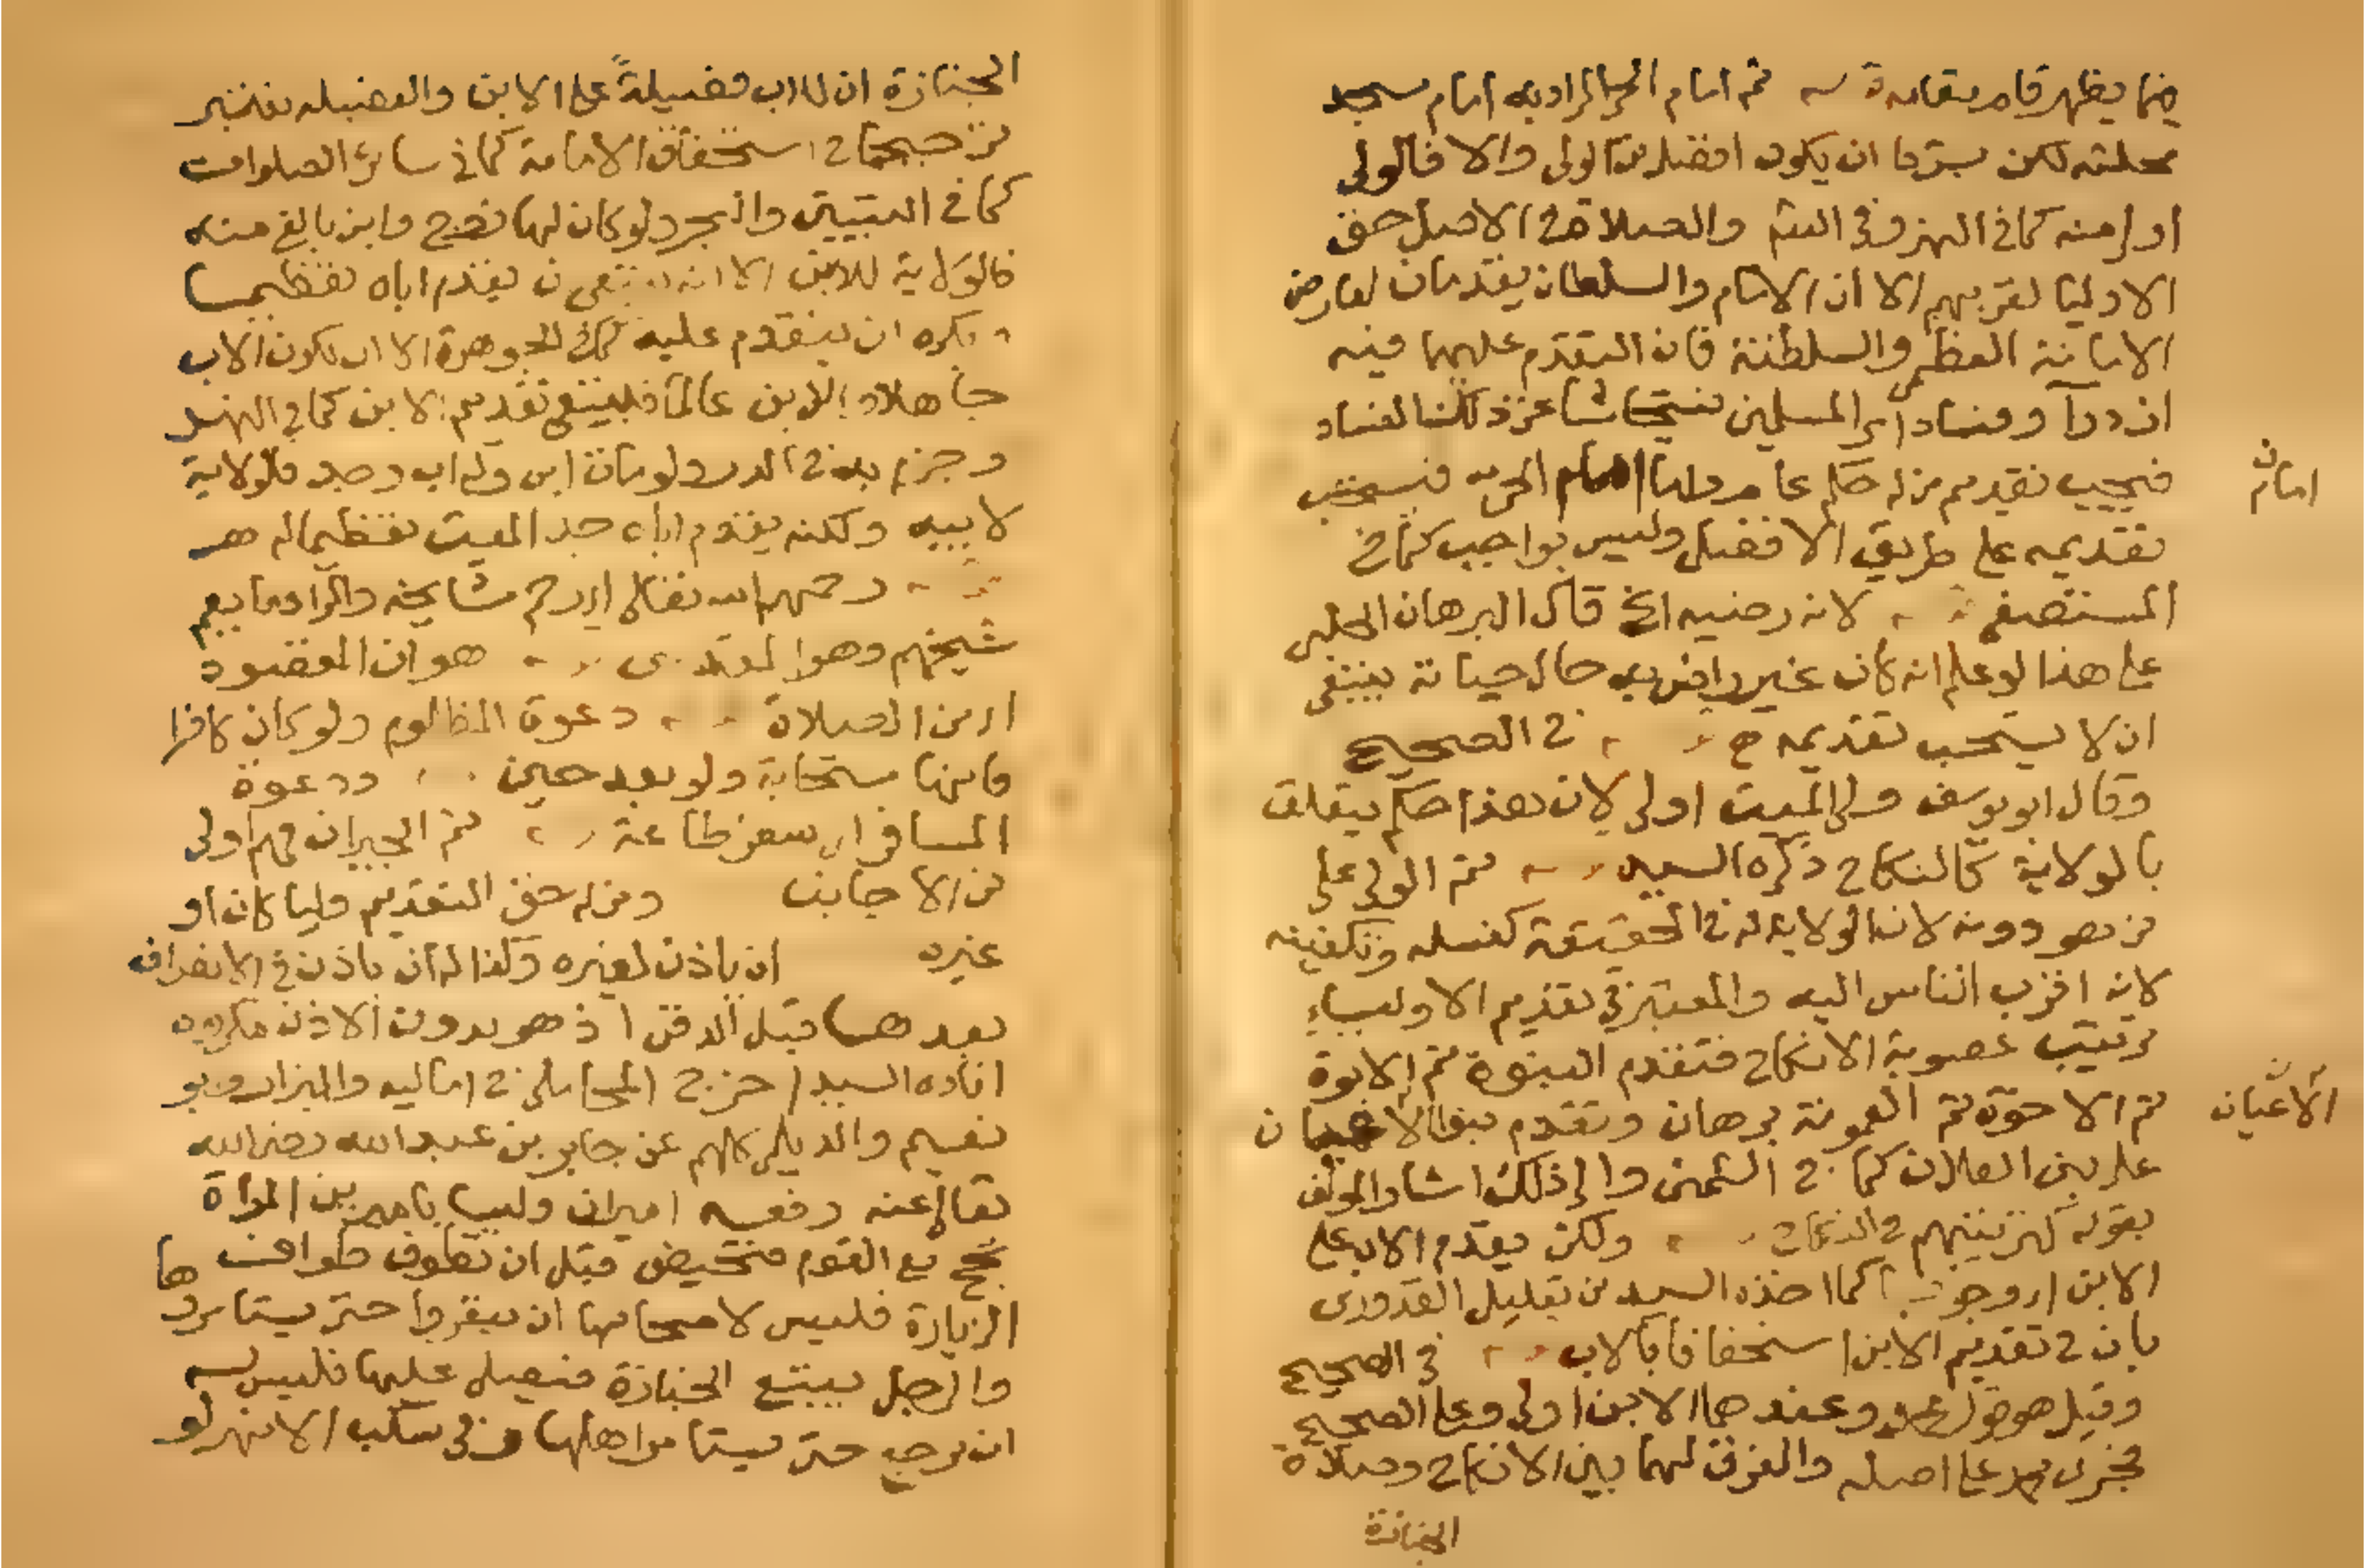 فيما يظهر قاله بقامه ثم امام الحي المراد به امام مسجد
محلته لكن بشرط ان يكون افضل من الولي والا فالولي
اولى منه كما في النهر وفي الفتح والصلاة في الاصل حق
الاوليا لقربهم الا ان الامام والسلطان يقدمان لعارض
الامامة العظمى والسلطنة فان التقدم عليهما فيه
ازدرآ وفساد امر المسلمين فتحاشا عن ذلك الفساد
فيجب تقديم من له حكم عام واما امام الحي فيستحب
تقديمه على طريق الافضل وليس بواجب كما في
المستصفى لانه رضيه الخ قال البرهان الحلبي
على هذا لو علم انه كان غير راض به حال حياته ينبغي
ان لا يستحب تقديمه ح في الصحيح
وقال ابو يوسف ولي الميت اولى لان هذا حكم يتعلق
بالولاية كالنكاح ذكره السيد ثم الولي على
من هو دونه لان الولاية له في الحقيقة كغسله وتكفينه
لانه اقرب الناس اليه والمعتبر في تقديم الاولياء
ترتيب عصوبة الانكاح فتقدم البنوة ثم الابوة
ثم الاخوة ثم العمومة برهان وتقدم بنوا الاعيان
على بني العلات كما في الشمني والى ذلك اشار المؤلف
بقوله كترتيبهم في النكاح ولكن يقدم الاب على
الابن اي وجوبا كما اخذه السيد من تعليل القدوري
بان في تقديم الابن استخفافا بالاب في الصحيح
وقيل هو قول محمد وعندهما الابن اولى وعلى الصحيح
فجرى محمد على اصله والفرق لهما بين الانكاح وصلاة
الجنازة
امام
الاعيان
الجنازة ان للاب فضيلةً على الابن والفضيله تعتبر
ترجيحا في استحقاق الامامة كما في سائر الصلوات
كما في التبيين والبحر ولو كان لها زوج وابن بالغ منه
فالولاية للابن الا انه ينبغي ان يقدم اباه تعظيما
ويكره ان يتقدم عليه كما في الجوهرة الا ان يكون الاب
جاهلا والابن عالما فينبغي تقديم الابن كما في النهر
وجزم به في الدر ولو مات ابن وله اب وجد فالولاية
لابيه ولكنه يقدم اباه جد الميت تعظيما له هـ
رحمهم الله تعالى اي رحم مشايخه والمراد ما يعم
شيخهم وهو القدوري هو ان المقصود
اي من الصلاة دعوة المظلوم ولو كان كافرا
فانها مستجابة ولو بعد حين ودعوة
المسافر اي سفر طاعة ثم الجيران فهم اولى
من الاجانب ومن له حق التقديم وليا كان او
غيره ان ياذن لغيره وكذا له ان ياذن في الانصراف
بعدها قبل الدفن اذ هو بدون الاذن مكروه
افاده السيد اخرج المحاملي في اماليه والبزار وابو
نعيم والديلمي كلهم عن جابر بن عبد الله رضي الله
تعالى عنه رفعه اميران وليسا باميرين المراة
تحج مع القوم فتحيض قبل ان تطوف طوافها
الزيارة فليس لاصحابها ان ينفروا حتى يستامروها
والرجل يتبع الجنازة فيصلي عليها فليس له
ان يرجع حتى يستامر اهلها وفي سكب الانهر لو